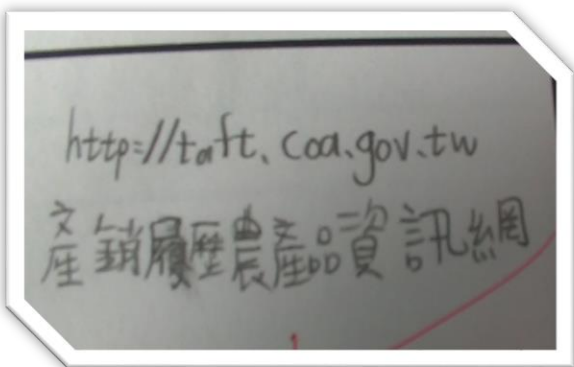 http://taft.coa.gov.tw
產銷履歷農產品資訊網